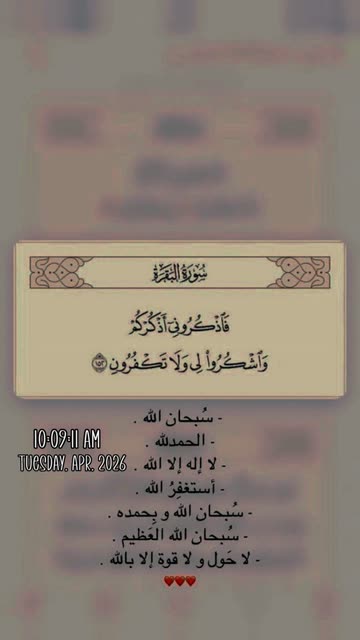 سُورَةُ البَقَرَةِ
فَٱذۡكُرُونِيٓ أَذۡكُرۡكُمۡ
وَٱشۡكُرُواْ لِي وَلَا تَكۡفُرُونِ ١٥٢
- سُبحان الله .
- الحمدلله .
- لا إله إلا الله .
- أستغفِرُ الله .
- سُبحان الله و بِحمده .
- سُبحان الله العَظيم .
- لا حَول و لا قوة إلا بالله .
❤️❤️❤️
10:09:11 AM
TUESDAY, APR. 2026